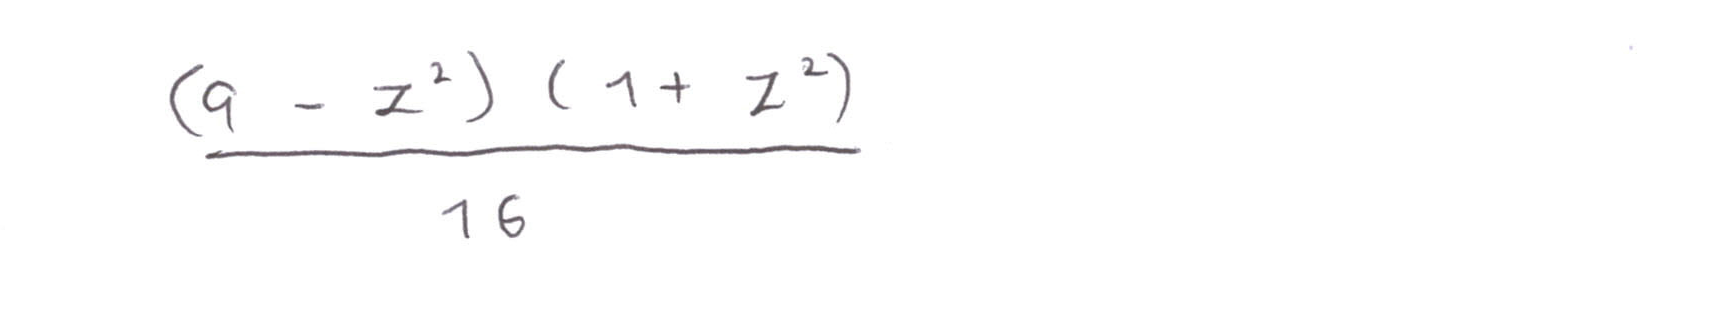 (9 - z²) (1 + z²)
16